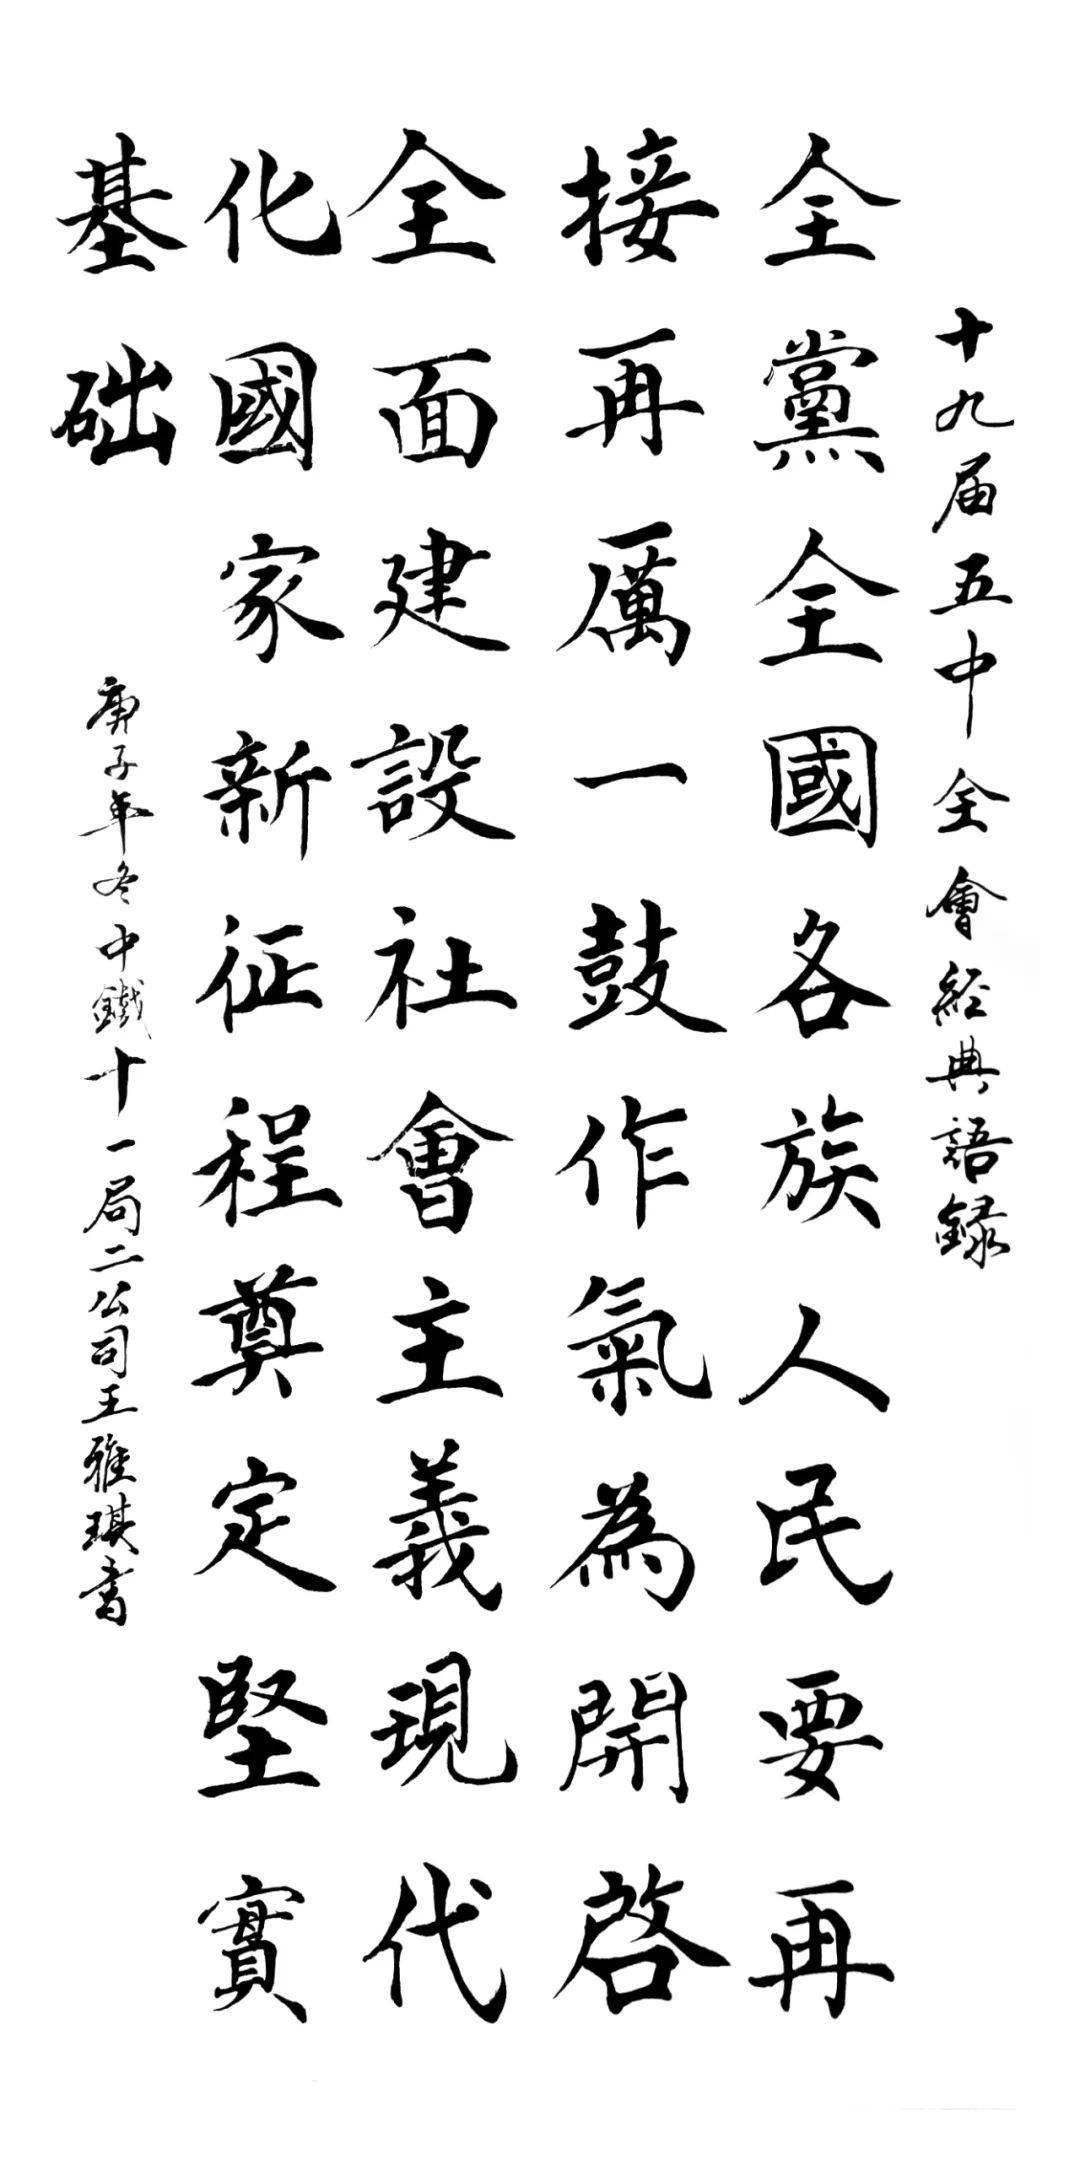 十九届五中全會經典語録
全黨全國各族人民要再
接再厲一鼓作氣為開啓
全面建設社會主義現代
化國家新征程奠定堅實
基础
庚子年冬中鐵十一局二公司王雅琪书